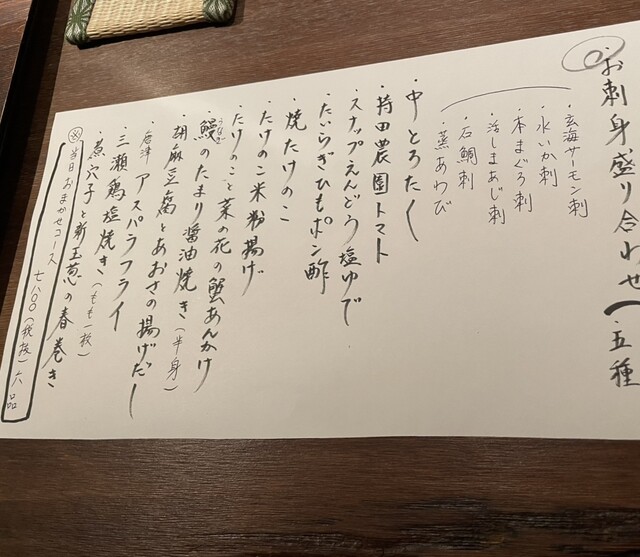 お刺身盛り合わせ(五種
玄海サーモン刺
・水いか刺
・本まぐろ刺
・活しまあじ刺
・石鯛刺
・蒸あわび
・中とろたく
・持田農園トマト
・スナップえんどう塩ゆで
・たいらぎひもポン酢
・焼たけのこ
・たけのこ米粉揚げ
・たけのこと菜の花の蟹あんかけ
・鰻のたまり醤油焼き(半身)
・胡麻豆腐とあおさの揚げだし
・唐津アスパラフライ
・三瀬鶏塩焼き(もも一枚)
・煮穴子と新玉葱の春巻き
※当日おまかせコース 七八〇〇(税抜)六品